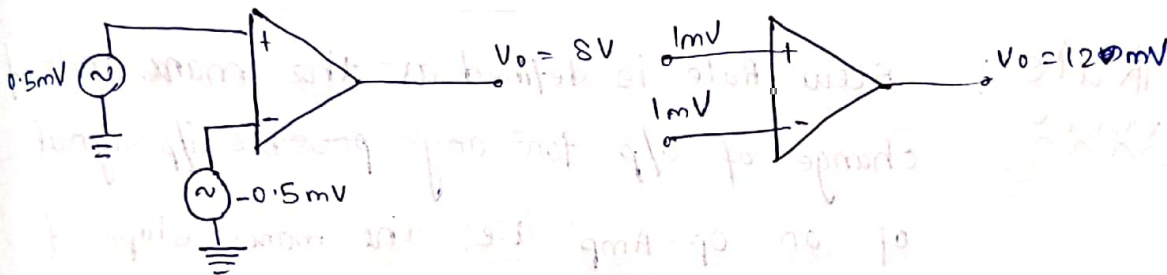 0.5mV
+
-
-0.5mV
Vo = 8V
1mV
1mV
+
-
Vo = 12mV